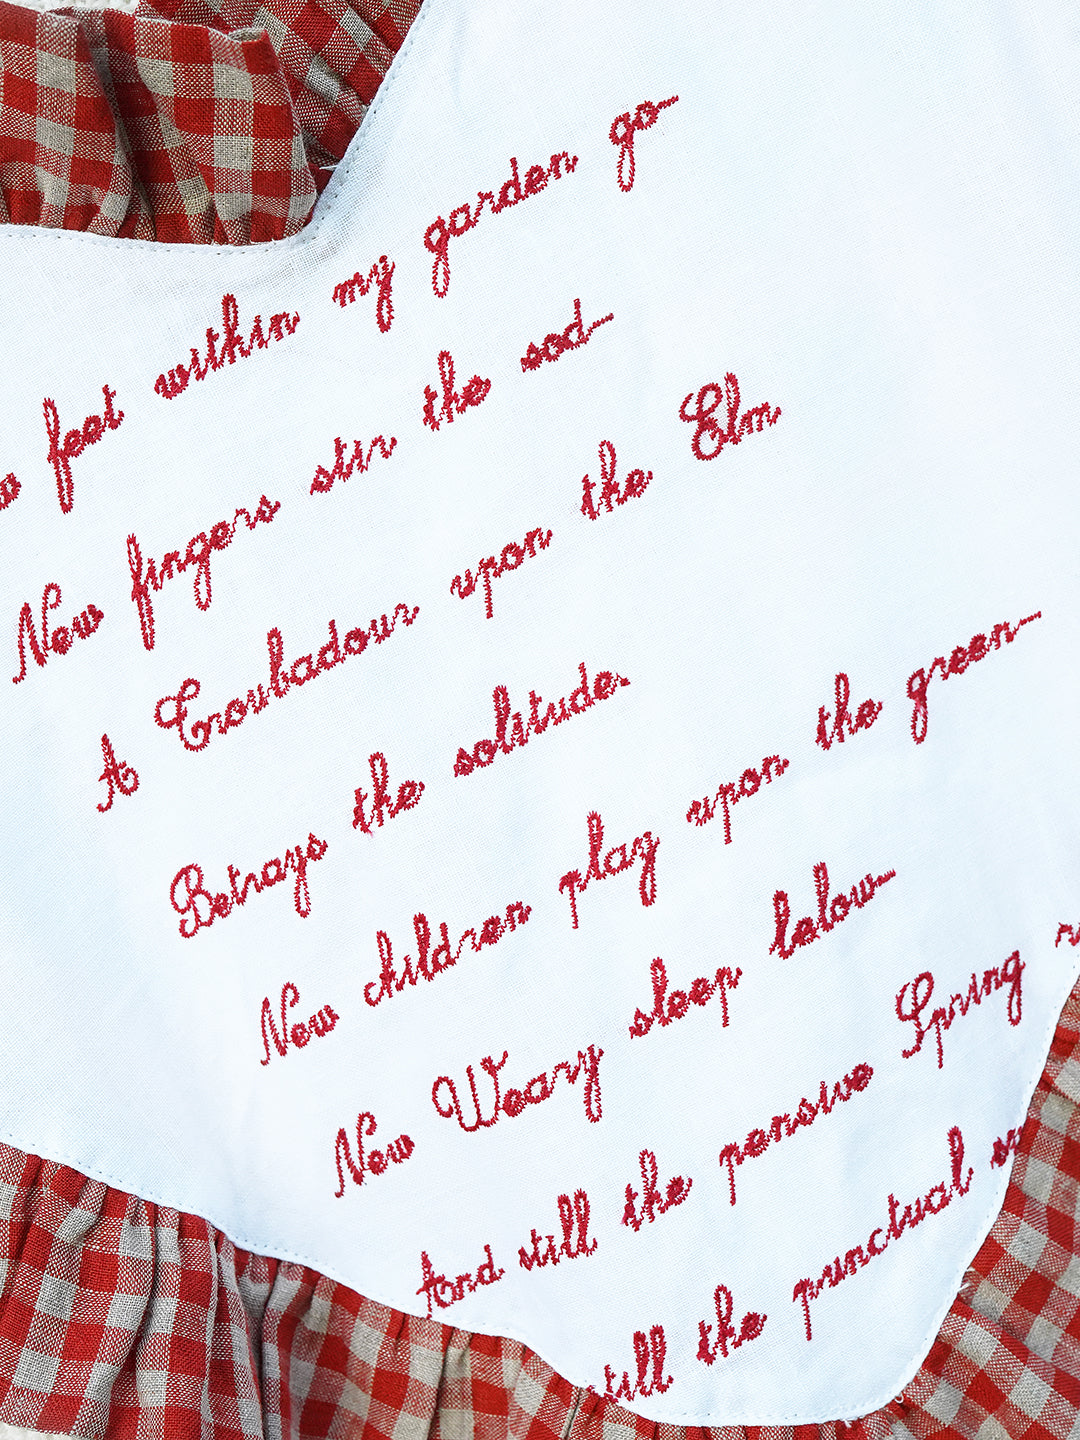 feet within my garden go-
New fingers stir the sod-
A Troubadour upon the Elm
Betrays the solitude.
New children play upon the green-
New Weary sleep below-
And still the pensive Spring
still the punctual